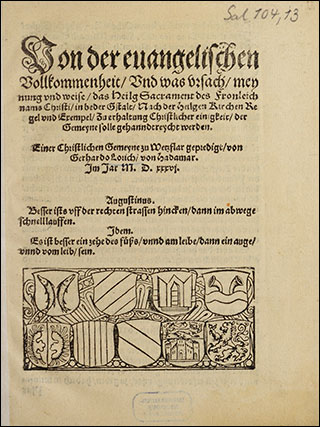 Sal 104, 13
Von der euangelischen
Vollkommenheit/ Vnd was vrsach/ mey
nung vnd weise/ das Heilg Sacrament des Fronleich
nams Christi/ in beder Gstalt/ Nach der Heilgen Kirchen Re
gel vnd Exempel/ Zu erhaltung Christlicher einigkeit/ der
Gemeyne solle gehanndtreycht werden.
Einer Christlichen Gemeyne zu Wetzflar gepredigt/ von
Gerhardo Lorich/ von Hadamar.
Im Jar M. D. xxxvj.
Augustinus.
Besser ists vff der rechten strassen hincken/ dann im abwege
schnell lauffen.
Idem.
Es ist besser ein zehe des fůß/ vnnd am leibe/ dann ein auge/
vnnd vom leib/ sein.